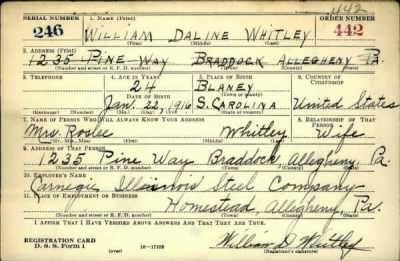 442
SERIAL NUMBER 1. NAME (Print) ORDER NUMBER
246 WILLIAM DALINE WHITLEY 442
(First) (Middle) (Last)
2. ADDRESS (Print)
1235 PINE WAY BRADDOCK ALLEGHENY PA.
(Number and street or R. F. D. number) (Town) (County) (State)
3. TELEPHONE 4. AGE IN YEARS 5. PLACE OF BIRTH 6. COUNTRY OF CITIZENSHIP
24 BLANEY
DATE OF BIRTH (Town or county)
Jan. 22, 1916 S. CAROLINA United States
(Exchange) (Number) (Mo.) (Day) (Yr.) (State or country)
7. NAME OF PERSON WHO WILL ALWAYS KNOW YOUR ADDRESS 8. RELATIONSHIP OF THAT PERSON
Mrs. Roslee Whitley Wife
(Mr., Mrs., Miss) (First) (Middle) (Last)
9. ADDRESS OF THAT PERSON
1235 Pine Way Braddock, Allegheny, Pa.
(Number and street or R. F. D. number) (Town) (County) (State)
10. EMPLOYER'S NAME
Carnegie Illinois Steel Company
11. PLACE OF EMPLOYMENT OR BUSINESS
Homestead, Allegheny, Pa.
(Number and street or R. F. D. number) (Town) (County) (State)
I AFFIRM THAT I HAVE VERIFIED ABOVE ANSWERS AND THAT THEY ARE TRUE.
REGISTRATION CARD
D. S. S. Form 1 (over) 16-17105 William D. Whitley
(Registrant's signature)